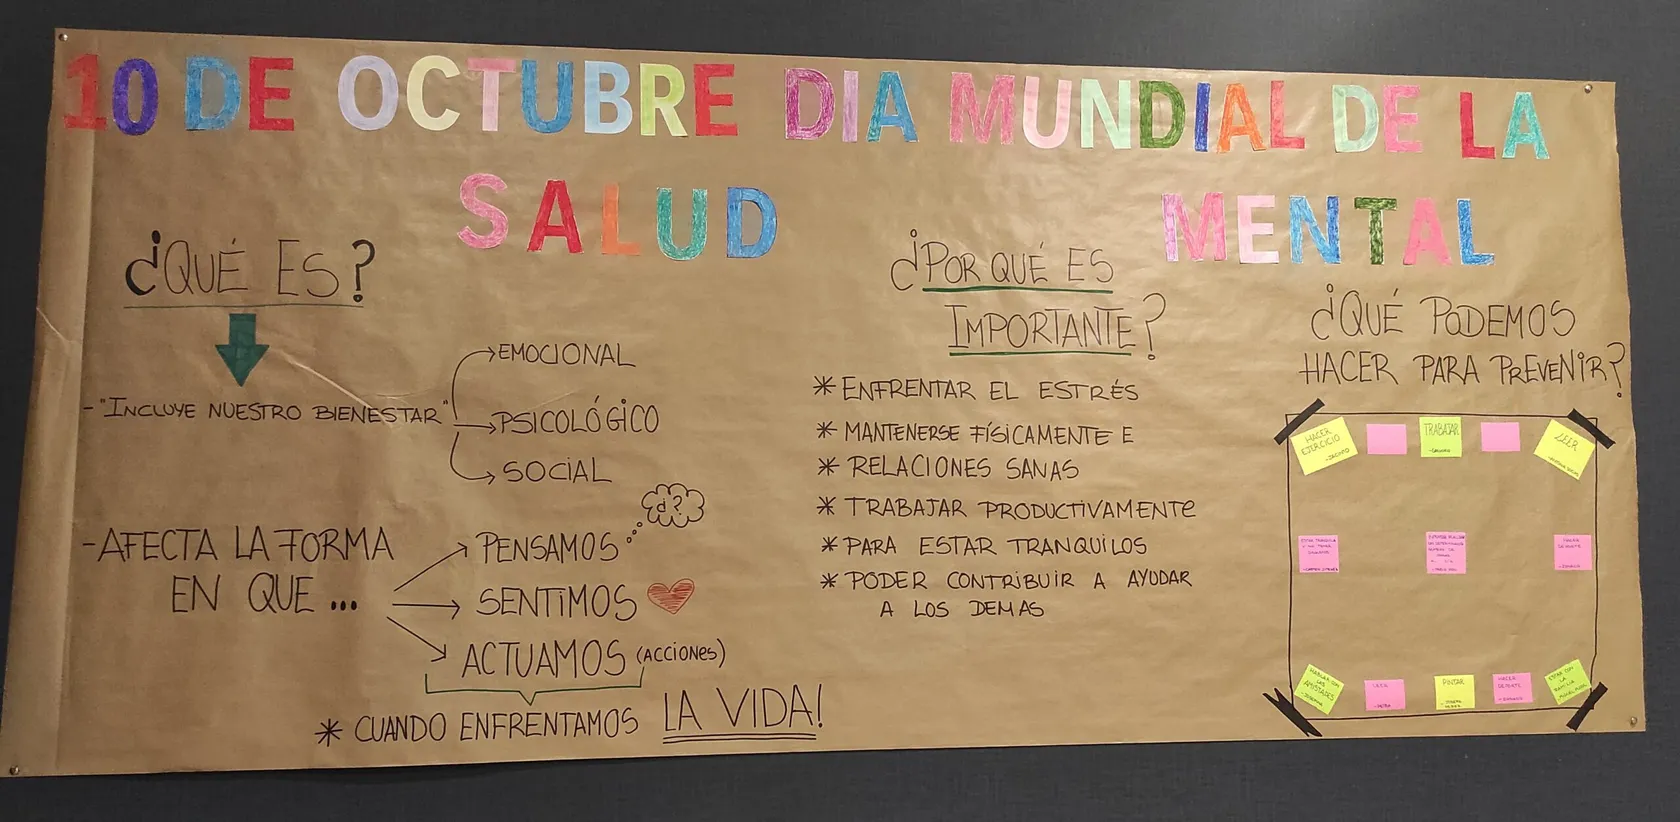 10 DE OCTUBRE DIA MUNDIAL DE LA
SALUD MENTAL
¿QUÉ ES?
-"INCLUYE NUESTRO BIENESTAR"
EMOCIONAL
PSICOLÓGICO
SOCIAL
-AFECTA LA FORMA
EN QUE ...
PENSAMOS
¿?
SENTIMOS
ACTUAMOS (ACCIONES)
* CUANDO ENFRENTAMOS LA VIDA!
¿POR QUÉ ES
IMPORTANTE?
* ENFRENTAR EL ESTRÉS
* MANTENERSE FÍSICAMENTE E
* RELACIONES SANAS
* TRABAJAR PRODUCTIVAMENTE
* PARA ESTAR TRANQUILOS
* PODER CONTRIBUIR A AYUDAR
A LOS DEMAS
¿QUÉ PODEMOS
HACER PARA PREVENIR?
HACER
EJERCICIO
TRABAJAR
LEER
HABLAR CON
LAS
AMISTADES
LEER
PINTAR
HACER
DEPORTE
ESTAR CON
LA
FAMILIA